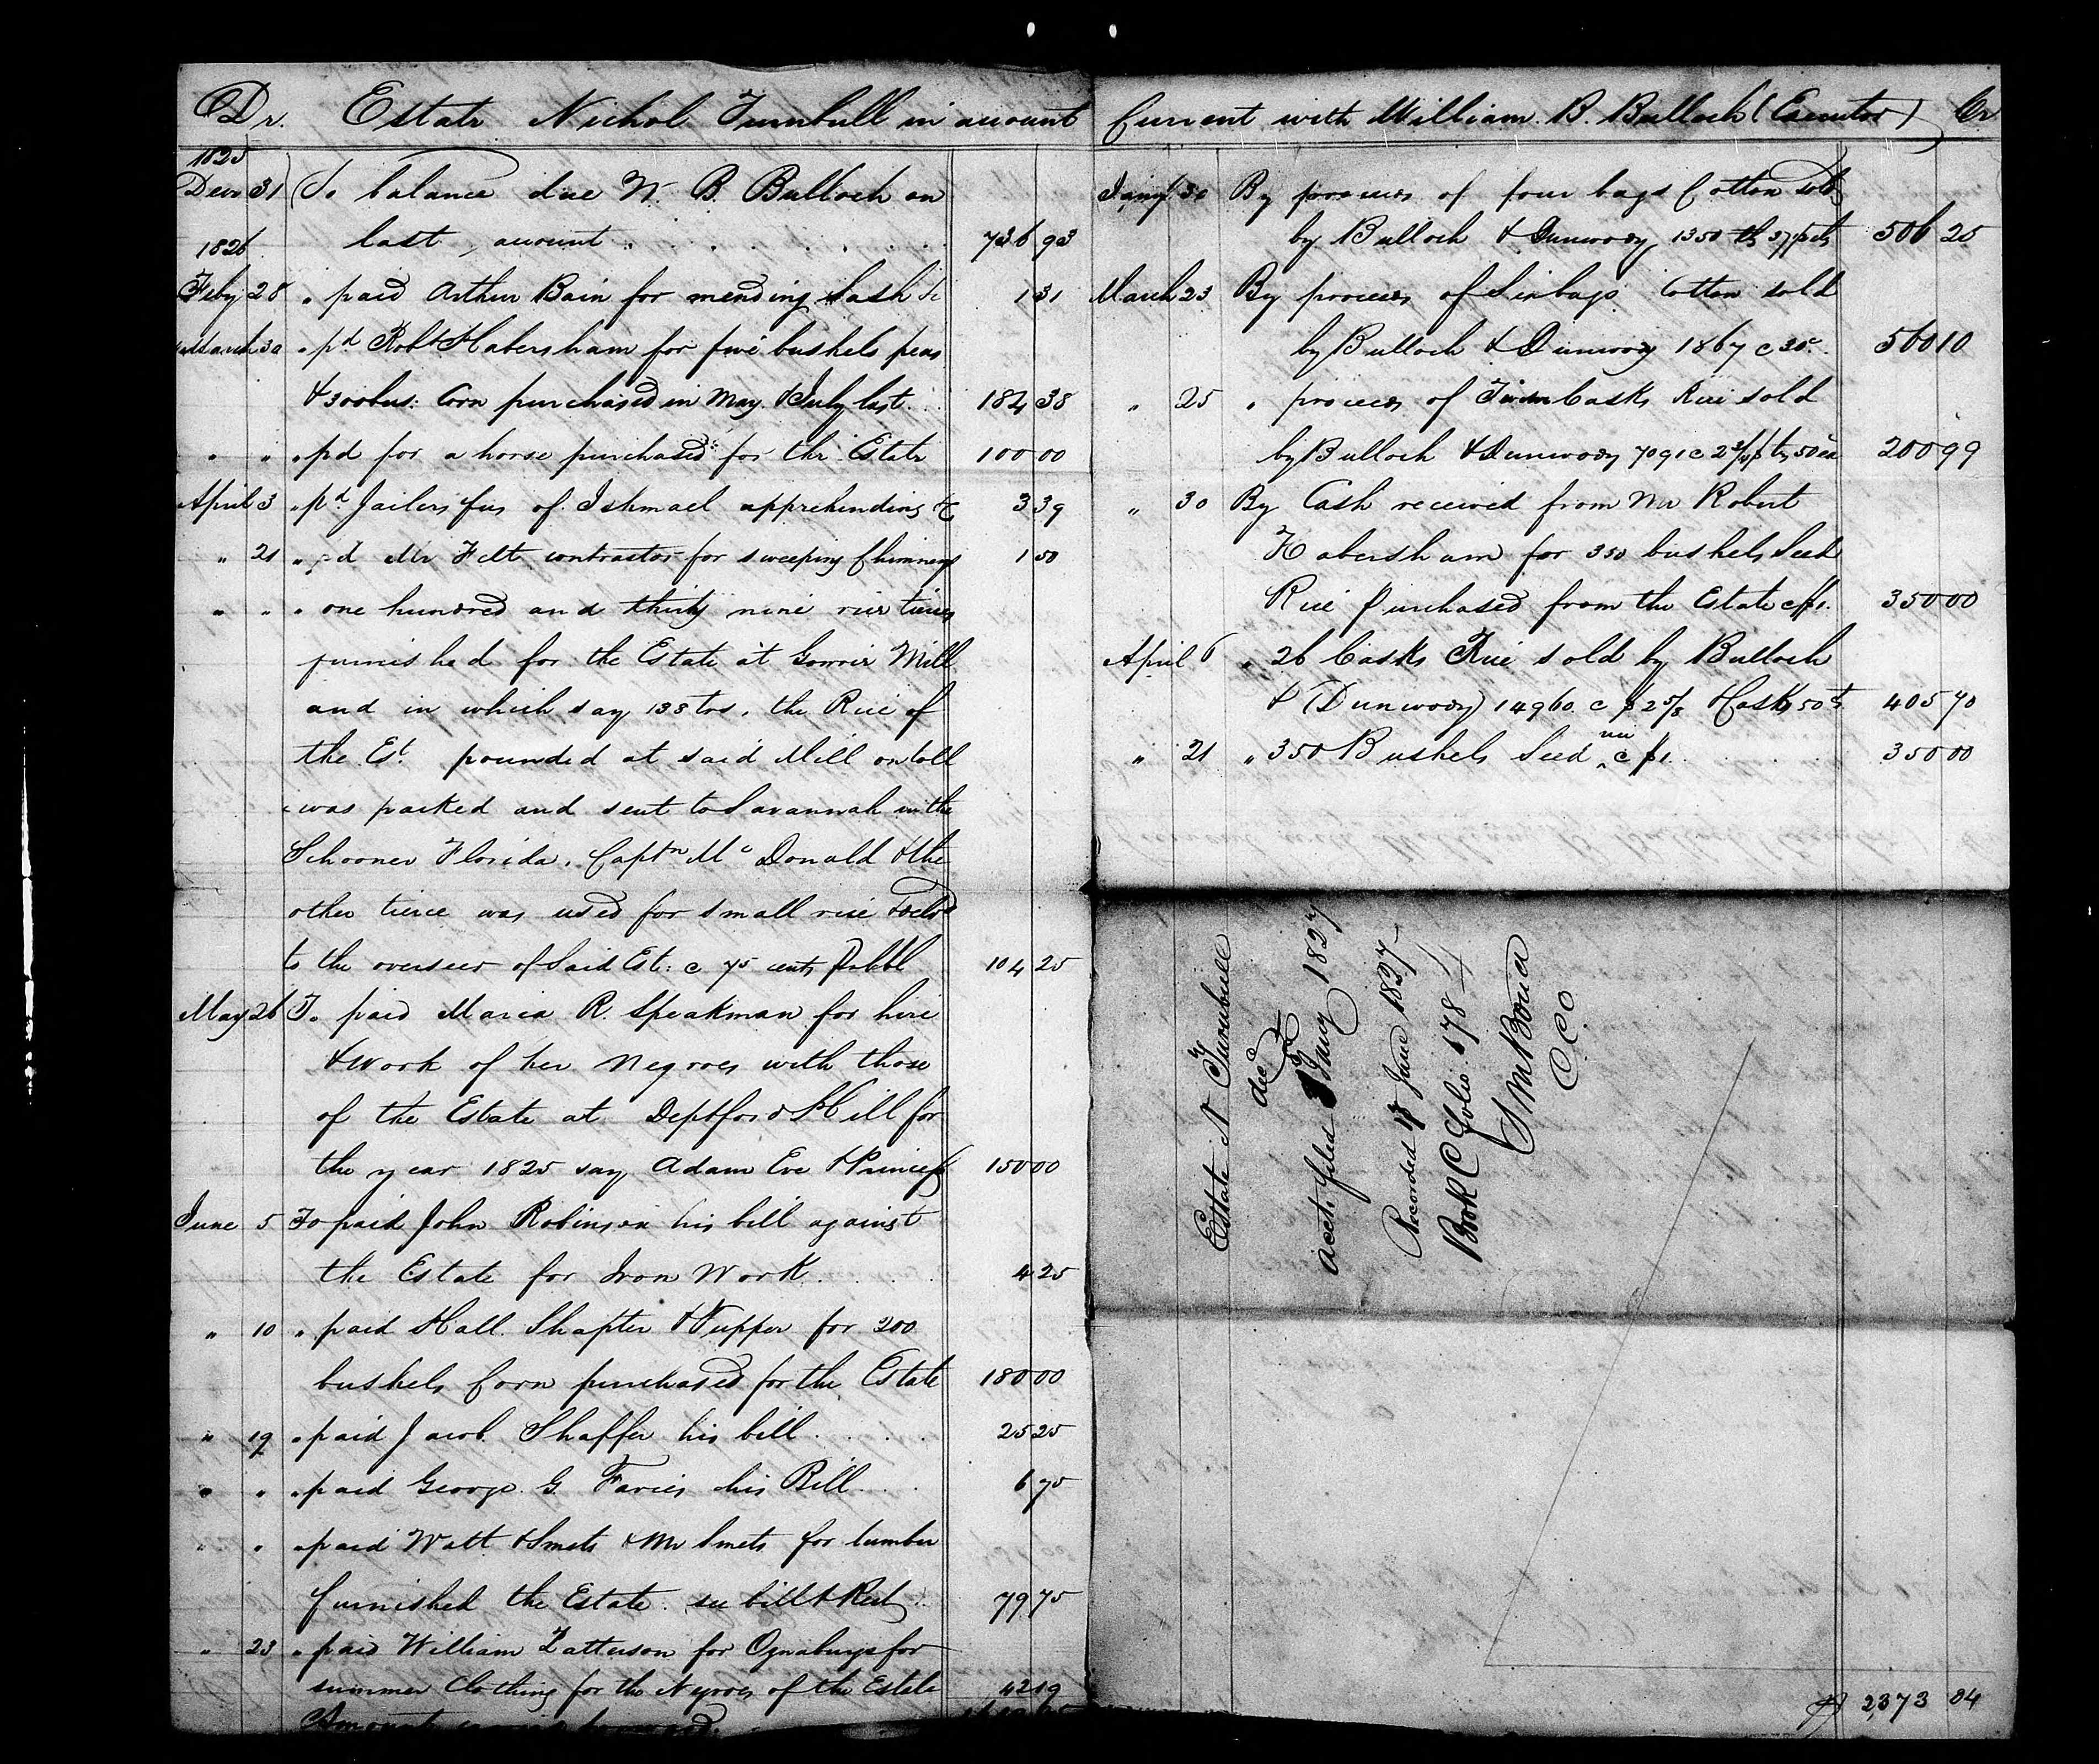 Dr. Estate Nichol Turnbull in account Current with William B. Bulloch (Executor) Cr
1825
Decr 31 To balance due W. B. Bulloch on
1826 last account . . . . . . . 736 93
Feby 28 " paid Arthur Bain for mending Sash &c 1 31
March 30 " pd Robt Habersham for five bushels peas
& 300 bus: Corn purchased in May & July last . . 184 38
" " " pd for a horse purchased for the Estate 100 00
April 3 " pd Jailers fees of Ishmael apprehending &c 3 39
" 21 " pd Mr Felt contractor for sweeping Chimneys 1 50
" " " one hundred and thirty nine rice tierces
furnished for the Estate at Gowrie Mill
and in which say 138 trs. the Rice of
the Est. pounded at said Mill on toll
was packed and sent to Savannah in the
Schooner Florida. Captn McDonald & the
other tierce was used for small rice
to the overseer of Said Est: c 75 cents 104 25
May 26 To paid Maria R. Speakman for hire
& work of her Negroes with those
of the Estate at Deptford Hill for
the year 1825 say Adam Eve & Princess 150 00
June 5 To paid John Robinson his bill against
the Estate for Iron Work . . . . 4 25
" 10 " paid Hall. Shapter & Tupper for 200
bushels Corn purchased for the Estate 180 00
" 19 " paid Jacob Shaffer his bill . . . . 25 25
" " " paid George G. Faries his Bill . . . 6 75
" " " paid Watt & Smets & Mr Smets for lumber
furnished the Estate. see bill & Rect 79 75
" 23 " paid William Patterson for Oznaburgs for
summer Clothing for the Negroes of the Estate 42 19
Amount carried forward
Jany 30 By proceeds of four bags Cotton sold
by Bulloch & Dunwoody 1350 lbs 37½ cts 506 25
March 23 By proceeds of Six bags Cotton sold
by Bulloch & Dunwoody 1867 c 30c. 560 10
" 25 " proceeds of Casks Rice sold
by Bulloch & Dunwoody 7091 c 200 99
" 30 By Cash received from Mr Robert
Habersham for 350 bushels Seed
Rice purchased from the Estate c $1. 350 00
April 6 " 26 Casks Rice sold by Bulloch
& Dunwoody 14960 c $2 5/8 & Casks 50 cts 405 70
" 21 " 350 Bushels Seed rice c $1. . . . . 350 00
Estate N Turnbull
decd
Accts filed Jany 1827
Recorded June 1827
Book C folio 178
S M Bond
C C O
$ 2,373 04